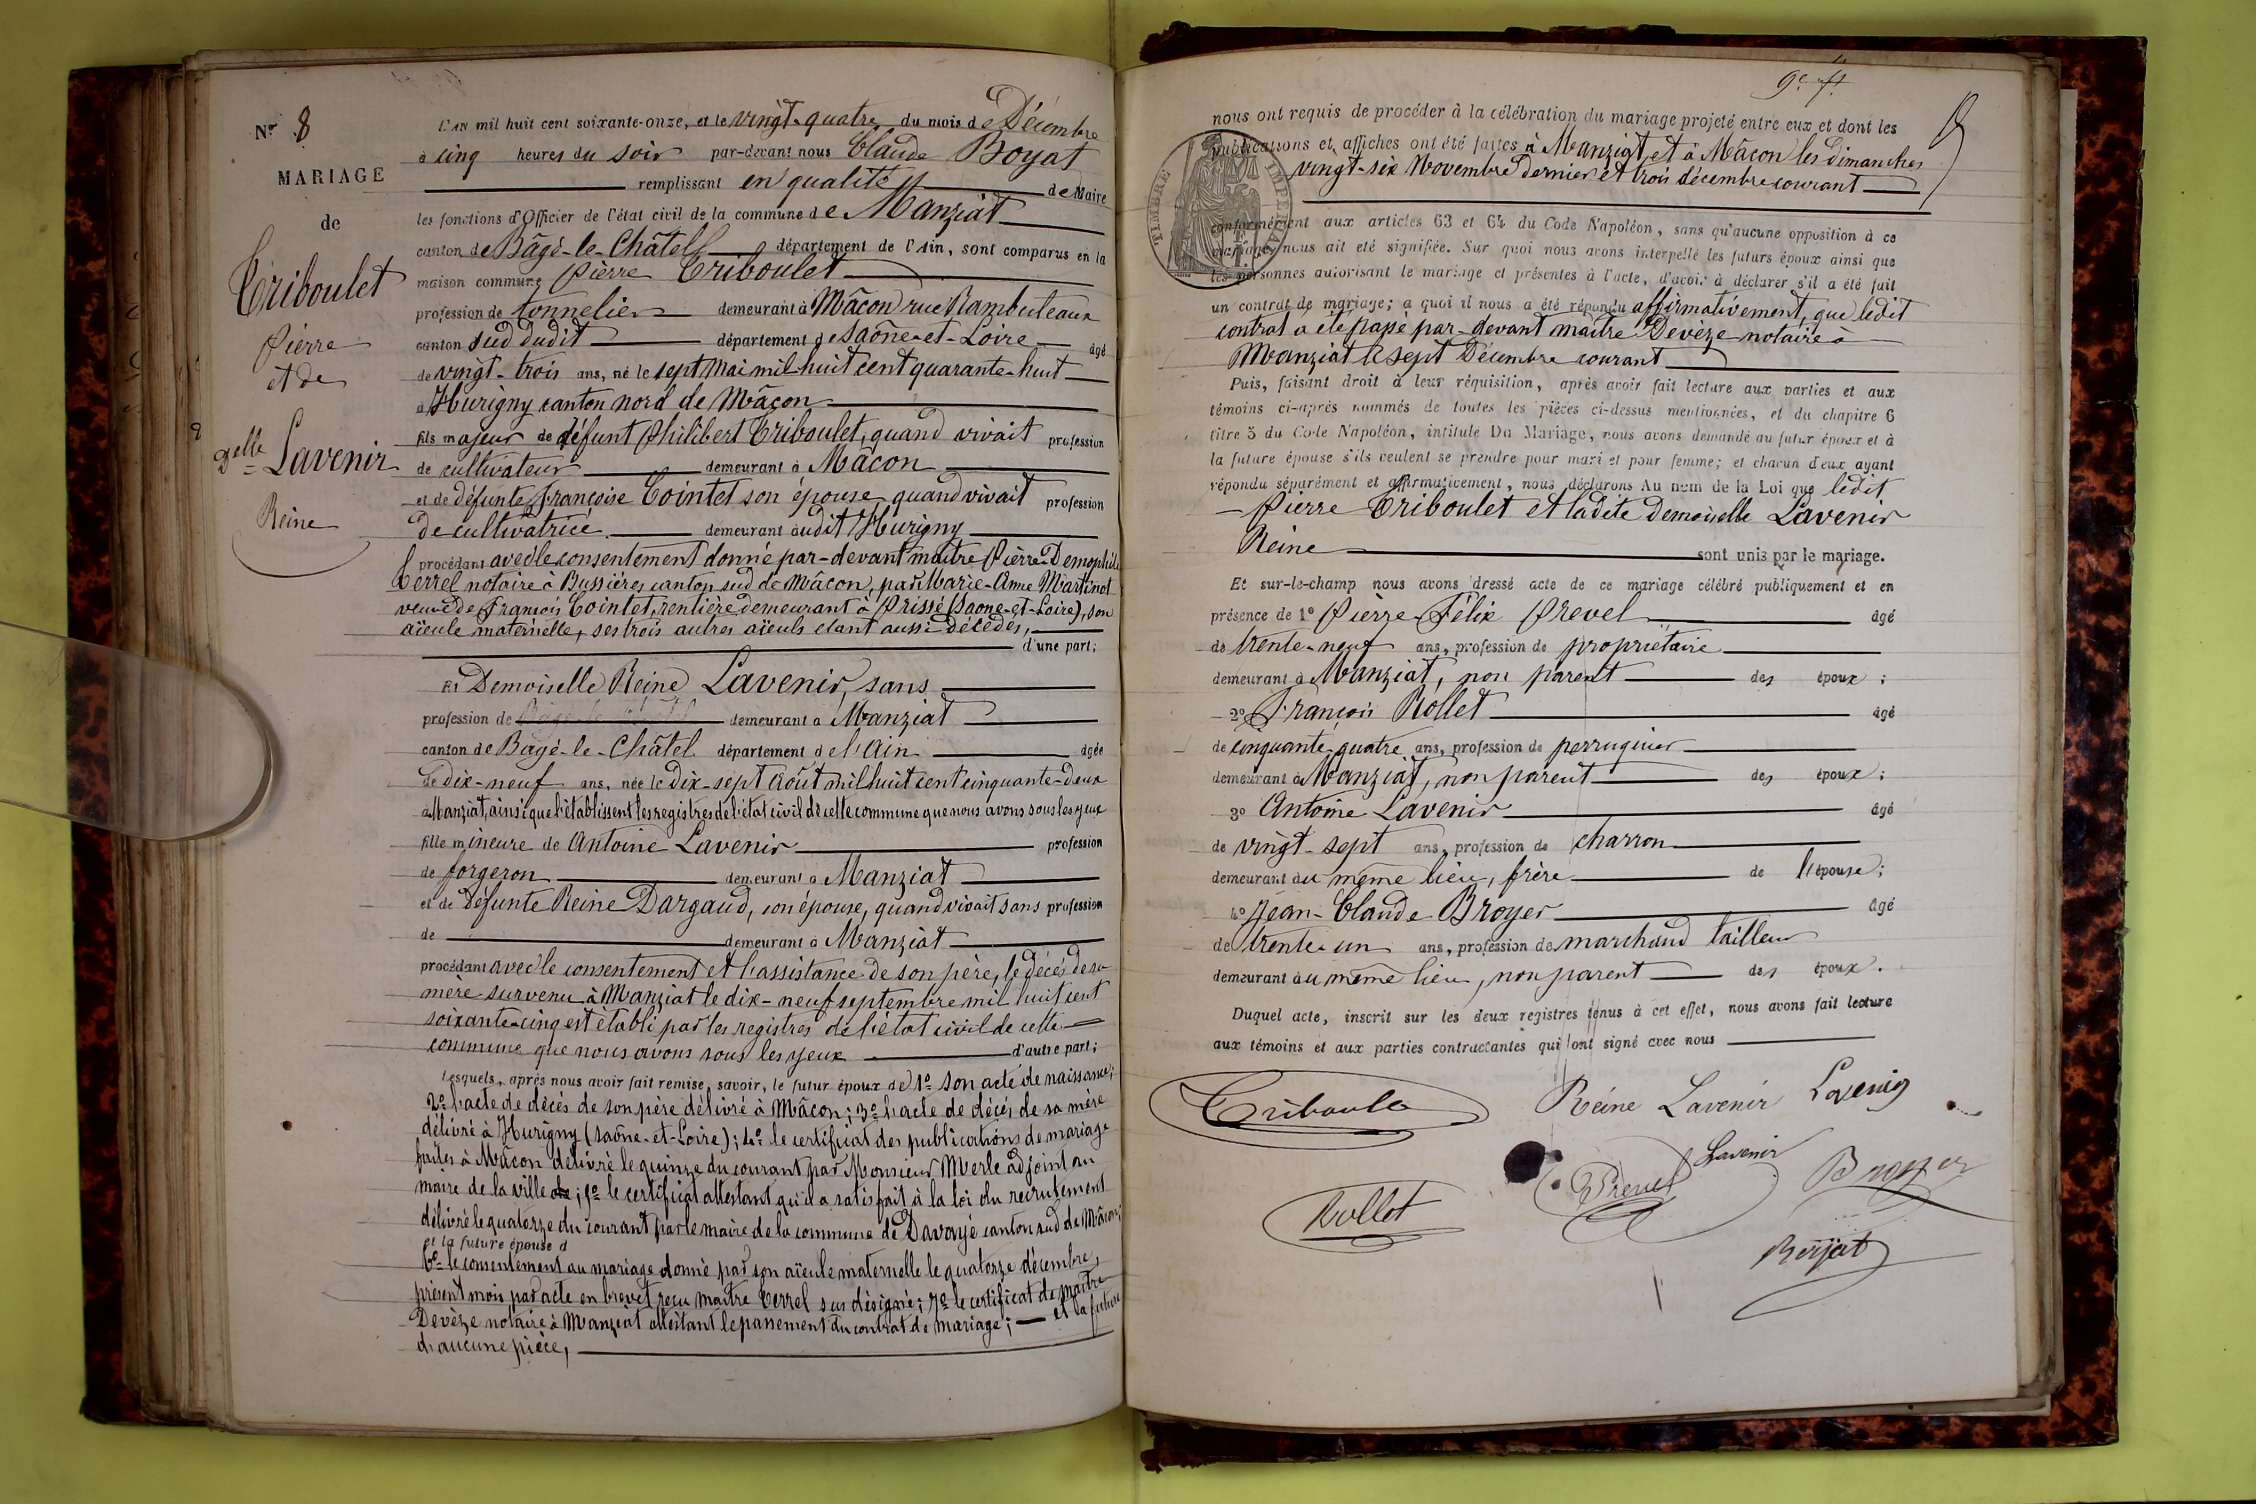 Nº 8
MARIAGE
de
Triboulet
Pierre
et de
Delle Lavenir
Reine
L'AN mil huit cent soixante-onze, et le vingt-quatre du mois de Décembre
à cinq heures du soir par-devant nous Claude Boyat
remplissant en qualité de Maire
les fonctions d'Officier de l'état civil de la commune de Manziat
canton de Bâgé-le-Châtel département de l'Ain, sont comparus en la
maison commune Pierre Triboulet
profession de tonnelier demeurant à Mâcon rue Rambuteaux
canton sud dudit département de Saône-et-Loire âgé
de vingt-trois ans, né le sept Mai mil huit cent quarante-huit
à Hurigny canton nord de Mâcon
fils majeur de défunt Philibert Triboulet, quand vivait profession
de cultivateur demeurant à Mâcon
et de défunte Françoise Cointet son épouse quand vivait profession
de cultivatrice demeurant audit Hurigny
procédant avec le consentement donné par-devant maître Pierre-Demophile
Terrel notaire à Bussières canton sud de Mâcon, par Marie-Anne Martinot
veuve de François Cointet, rentière demeurant à Prissé (Saone-et-Loire), son
aïeule maternelle, ses trois autres aïeuls etant aussi décédés,
d'une part;
Et Demoiselle Reine Lavenir, sans
profession de demeurant à Manziat
canton de Bâgé-le-Châtel département de l'Ain âgée
de dix-neuf ans, née le Dix-sept Août mil huit cent cinquante-deux
à Manziat, ainsi que l'établissent les registres de l'état civil de cette commune que nous avons sous les yeux
fille mineure de Antoine Lavenir profession
de forgeron demeurant à Manziat
et de défunte Reine Dargaud, son épouse, quand vivait sans profession
de demeurant à Manziat
procédant avec le consentement et l'assistance de son père, le décès de sa
mère survenu à Manziat le dix-neuf septembre mil huit cent
soixante-cinq est établi par les registres de l'état civil de cette
commune que nous avons sous les yeux d'autre part;
Lesquels, après nous avoir fait remise, savoir, le futur époux de 1º son acte de naissance;
2º l'acte de décès de son père délivré à Mâcon; 3º l'acte de décès de sa mère
délivré à Hurigny (Saône-et-Loire); 4º le certificat des publications de mariage
faites à Mâcon délivré le quinze du courant par Monsieur Merle adjoint au
maire de la ville; 5º le certificat attestant qu'il a satisfait à la loi du recrutement
délivré le quatorze du courant par le maire de la commune de Davayé canton sud de Mâcon;
et la future épouse d
6º le consentement au mariage donné par son aïeule maternelle le quatorze décembre,
présent mois par acte en brevet reçu maître Terrel sus désigné; 7º le certificat de maître
Devèze notaire à Manziat attestant le passement du contrat de mariage; et la future
d'aucune pièce,
9e ft
nous ont requis de procéder à la célébration du mariage projeté entre eux et dont les
publications et affiches ont été faites à Manziat et à Mâcon les dimanches
vingt-six Novembre dernier et trois décembre courant
TIMBRE IMPÉRIAL
conformément aux articles 63 et 64 du Code Napoléon, sans qu'aucune opposition à ce
mariage nous ait eté signifiée. Sur quoi nous avons interpellé les futurs époux ainsi que
les personnes autorisant le mariage et présentes à l'acte, d'avoir à déclarer s'il a été fait
un contrat de mariage; a quoi il nous a été répondu affirmativement, que ledit
contrat a été passé par-devant maître Devèze notaire à
Manziat le sept Décembre courant
Puis, faisant droit à leur réquisition, après avoir fait lecture aux parties et aux
témoins ci-après nommés de toutes les pièces ci-dessus mentionnées, et du chapitre 6
titre 5 du Code Napoléon, intitulé Du Mariage, nous avons demandé au futur époux et à
la future épouse s'ils veulent se prendre pour mari et pour femme; et chacun d'eux ayant
répondu séparément et affirmativement, nous déclarons Au nom de la Loi que ledit
Pierre Triboulet et ladite demoiselle Lavenir
Reine sont unis par le mariage.
Et sur-le-champ nous avons dressé acte de ce mariage célébré publiquement et en
présence de 1º Pierre-Félix Prevel âgé
de trente-neuf ans, profession de propriétaire
demeurant à Manziat, non parent des époux;
2º François Rollet âgé
de cinquante-quatre ans, profession de perruquier
demeurant à Manziat, non parent des époux;
3º Antoine Lavenir âgé
de vingt-sept ans, profession de charron
demeurant au même lieu, frère de l'épouse;
4º Jean-Claude Broyer âgé
de trente-un ans, profession de marchand tailleur
demeurant au même lieu, non parent des époux.
Duquel acte, inscrit sur les deux registres tenus à cet effet, nous avons fait lecture
aux témoins et aux parties contractantes qui l'ont signé avec nous
Triboulet
Reine Lavenir
Lavenir
Lavenir
Prevel
Broyer
Rollet
Boyat